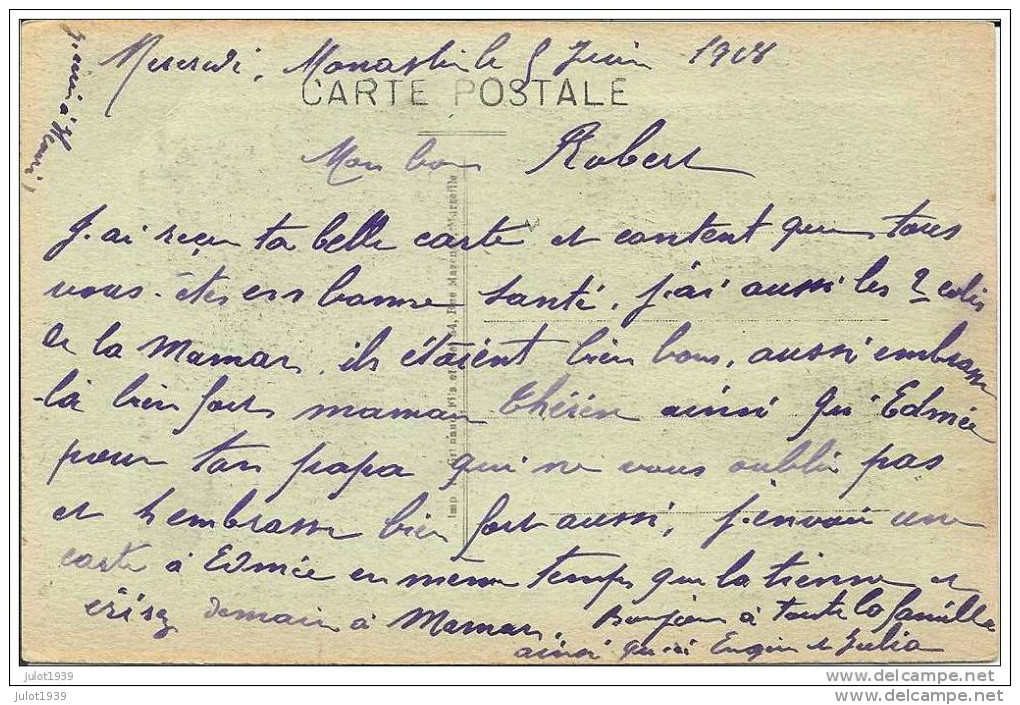 Mercredi, Monastir le 5 Juin 1918
CARTE POSTALE
Mon bon Robert
J'ai reçu ta belle carte et content que tous
vous êtes en bonne santé, j'ai aussi les 2 colis
de la Maman, ils étaient bien bons, aussi embrasse
-la bien fort maman Thérèse ainsi qu'Edmée
pour ton papa qui ne vous oublie pas
et t'embrasse bien fort aussi, j'envoie une
carte à Edmée en même temps que la tienne et
demain à Maman. Bonjour à toute la famille
ainsi qu'à Eugène et Julia
julot1939
julot1939
www.delcampe.net